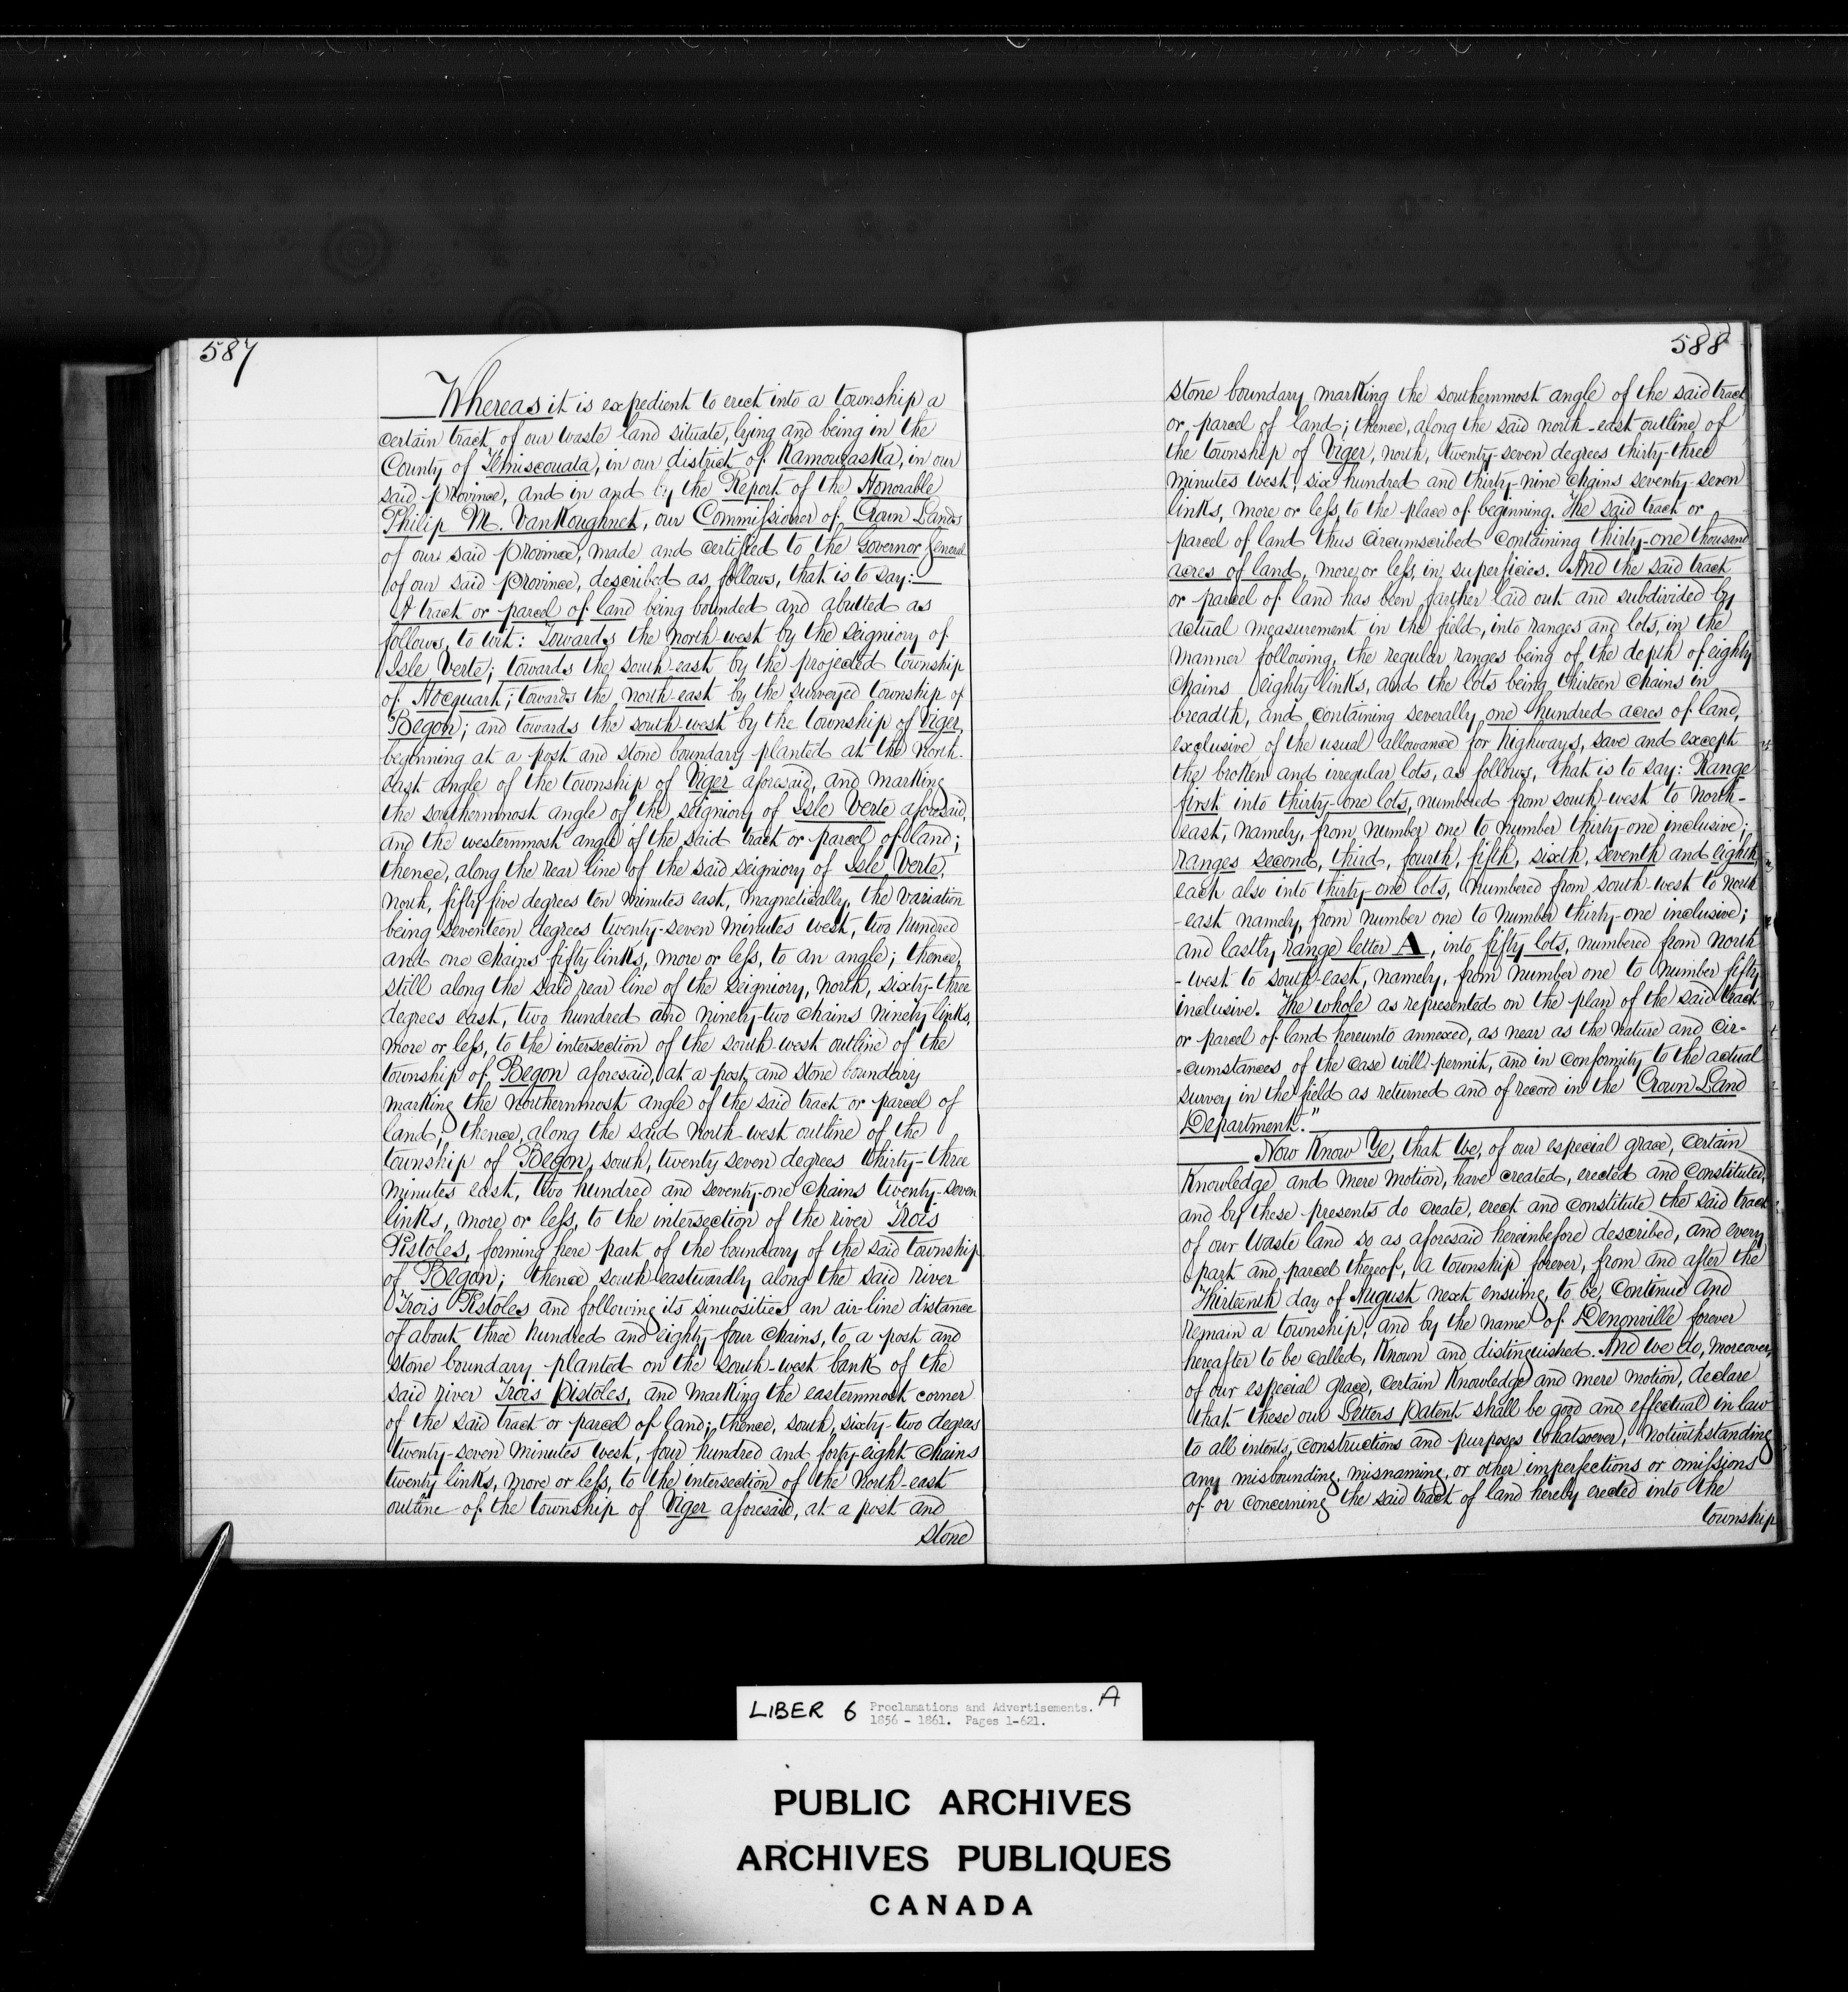 587
Whereas it is expedient to erect into a township a
certain tract of our waste land situate, lying and being in the
County of Témiscouata, in our district of Kamouraska, in our
said province, and in and by the Report of the Honorable
Philip M. VanKoughnet, our Commissioner of Crown Lands
of our said province, made and certified to the Governor General
of our said province, described as follows, that is to say:—
A tract or parcel of land being bounded and abutted as
follows, to wit: Towards the north-west by the Seigniory of
Isle Verte; towards the south-east by the projected township
of Hocquart; towards the north-east by the surveyed township of
Begon; and towards the south-west by the township of Viger,
beginning at a post and stone boundary planted at the north-
east angle of the township of Viger aforesaid, and marking
the southernmost angle of the seigniory of Isle Verte aforesaid,
and the westernmost angle of the said tract or parcel of land;
thence, along the rear line of the said seigniory of Isle Verte,
north, fifty five degrees ten minutes east, magnetically, the variation
being seventeen degrees twenty-seven minutes west, two hundred
and one chains fifty links, more or less, to an angle; thence,
still along the said rear line of the seigniory, north, sixty-three
degrees east, two hundred and ninety-two chains ninety links,
more or less, to the intersection of the south-west outline of the
township of Begon aforesaid, at a post and stone boundary
marking the northernmost angle of the said tract or parcel of
land; thence, along the said north-west outline of the
township of Begon, south, twenty seven degrees thirty-three
minutes east, two hundred and seventy-one chains twenty-seven
links, more or less, to the intersection of the river Trois
Pistoles, forming here part of the boundary of the said township
of Begon; thence south-eastwardly along the said river
Trois Pistoles and following its sinuosities an air-line distance
of about three hundred and eighty-four chains, to a post and
stone boundary planted on the south-west bank of the
said river Trois Pistoles, and marking the easternmost corner
of the said tract or parcel of land; thence, south, sixty-two degrees
twenty-seven minutes west, four hundred and forty-eight chains
twenty links, more or less, to the intersection of the north-east
outline of the township of Viger aforesaid, at a post and
stone
588
stone boundary marking the southernmost angle of the said tract
or parcel of land; thence, along the said north-east outline of
the township of Viger, north, twenty-seven degrees thirty-three
minutes west, six hundred and thirty-nine chains seventy-seven
links, more or less, to the place of beginning. The said tract or
parcel of land thus circumscribed containing thirty-one thousand
acres of land, more or less, in superficies. And the said tract
or parcel of land has been farther laid out and subdivided by
actual measurement in the field, into ranges and lots, in the
manner following, the regular ranges being of the depth of eighty
chains eighty links, and the lots being thirteen chains in
breadth, and containing severally one hundred acres of land,
exclusive of the usual allowance for highways, save and except
the broken and irregular lots, as follows, that is to say: Range
first into thirty-one lots, numbered from south-west to north-
east, namely, from number one to number thirty-one inclusive;
ranges second, third, fourth, fifth, sixth, seventh and eighth
each also into thirty-one lots, numbered from south-west to north
-east namely, from number one to number thirty-one inclusive;
and lastly, range letter A, into fifty lots, numbered from north
-west to south-east, namely, from number one to number fifty
inclusive. The whole as represented on the plan of the said tract
or parcel of land hereunto annexed, as near as the nature and cir-
-cumstances of the case will permit, and in conformity to the actual
survey in the field as returned and of record in the Crown Land
Department."
Now Know Ye, that We, of our especial grace, certain
Knowledge and mere motion, have created, erected and constituted,
and by these presents do create, erect and constitute the said tract
of our waste land so as aforesaid hereinbefore described, and every
part and parcel thereof, a township forever, from and after the
Thirteenth day of August next ensuing, to be, continue and
remain a township, and by the name of Denonville forever
hereafter to be called, Known and distinguished. And we do, moreover,
of our especial grace, certain Knowledge and mere motion, declare
that these our Letters patent shall be good and effectual in law
to all intents, constructions and purposes whatsoever, notwithstanding
any misbounding, misnaming, or other imperfections or omissions
of or concerning the said tract of land hereby erected into the
township
LIBER 6 Proclamations and Advertisements. A
1856 - 1861. Pages 1-621.
PUBLIC ARCHIVES
ARCHIVES PUBLIQUES
CANADA